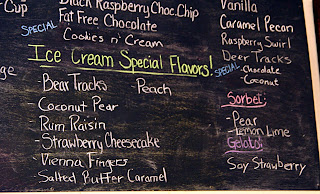 -Cup
Black Raspberry Choc. Chip
Fat Free Chocolate
SPECIAL
Cookies n' Cream
Ice Cream Special Flavors!
-Bear Tracks
Peach
Coconut Pear
Rum Raisin
-Strawberry Cheesecake
Vienna Fingers
-Salted Butter Caramel
Vanilla
Caramel Pecan
Raspberry Swirl
Deer Tracks
SPECIAL
-Chocolate
-Coconut
Sorbet:
-Pear
-Lemon Lime
Gelato:
Soy Strawberry